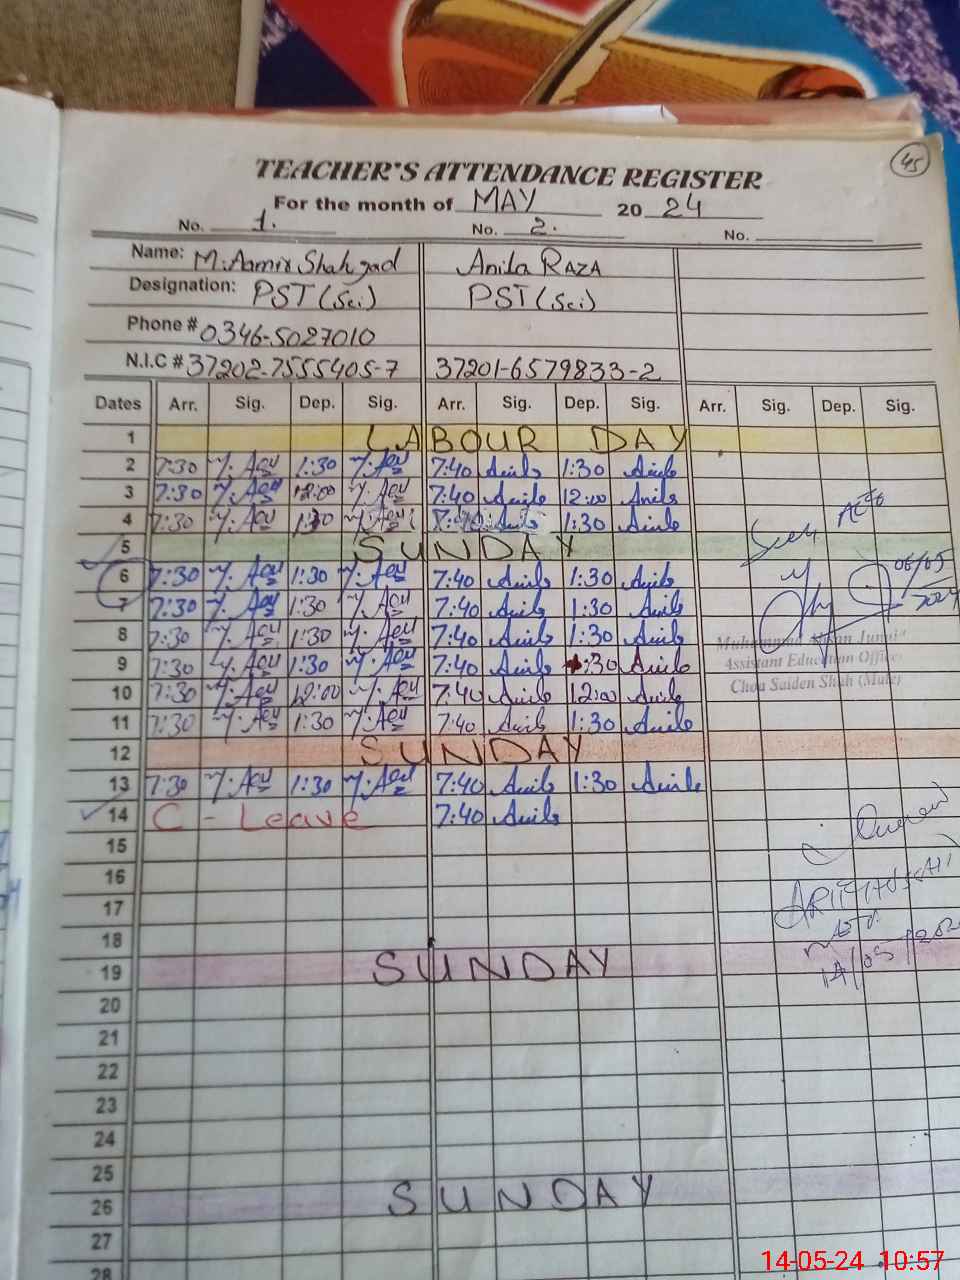 45
TEACHER'S ATTENDANCE REGISTER
For the month of MAY 2024
No. 1. No. 2. No.
Name: M. Aamir Shahzad Anila RAZA
Designation: PST (Sci) PST (Sci)
Phone # 0346-5027010
N.I.C # 37202-7555405-7 37201-6579833-2
Dates Arr. Sig. Dep. Sig. Arr. Sig. Dep. Sig. Arr. Sig. Dep. Sig.
1 LABOUR DAY
2 7:30 1:30 7:40 Anila 1:30 Anila
3 7:30 12:00 7:40 Anila 12:00 Anila
4 7:30 1:30 7:40 Anila 1:30 Anila
5 SUNDAY
6 7:30 1:30 7:40 Anila 1:30 Anila
7 7:30 1:30 7:40 Anila 1:30 Anila
8 7:30 1:30 7:40 Anila 1:30 Anila
9 7:30 1:30 7:40 Anila 1:30 Anila
10 7:30 12:00 7:40 Anila 12:00 Anila
11 7:30 1:30 7:40 Anila 1:30 Anila
12 SUNDAY
13 7:30 1:30 7:40 Anila 1:30 Anila
14 C - Leave 7:40 Anila
15
16
17
18
19 SUNDAY
20
21
22
23
24
25
26 SUNDAY
27
28
Seen
06/05
2024
Assistant Education Officer
Choa Saiden Shah (Male)
14/05/202
14-05-24 10:57